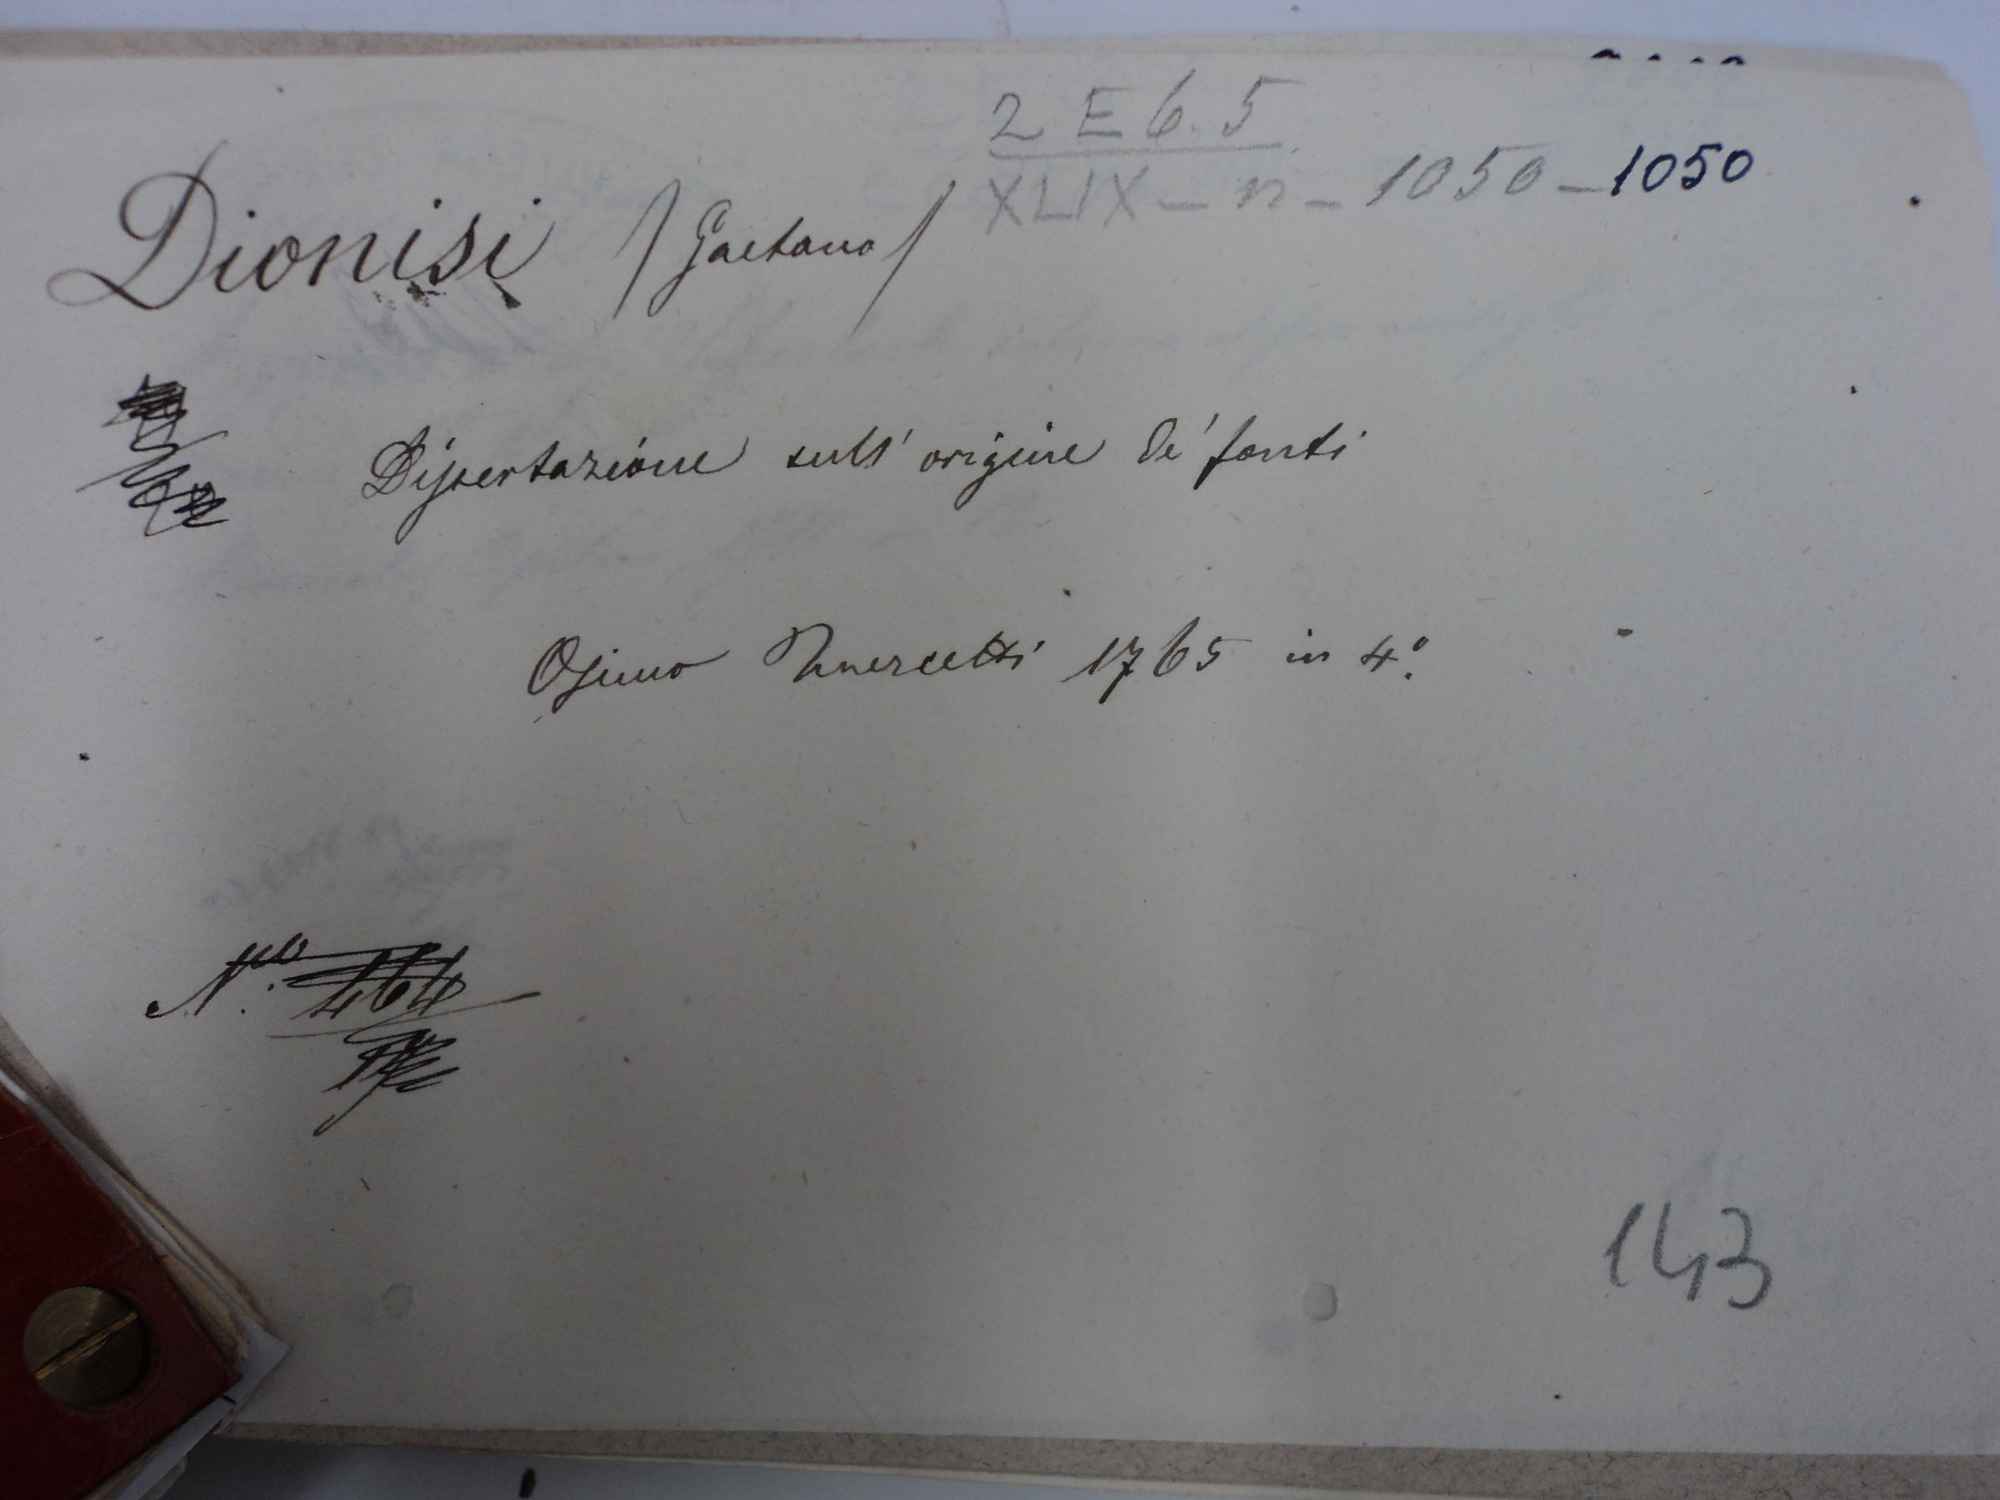 2 E 6. 5
XLIX - n - 1050 - 1050
Dionisi /Gaetano/
Dissertazione sull' origine de' fonti
Osimo 1765 in 4.º
N.ro 464
143